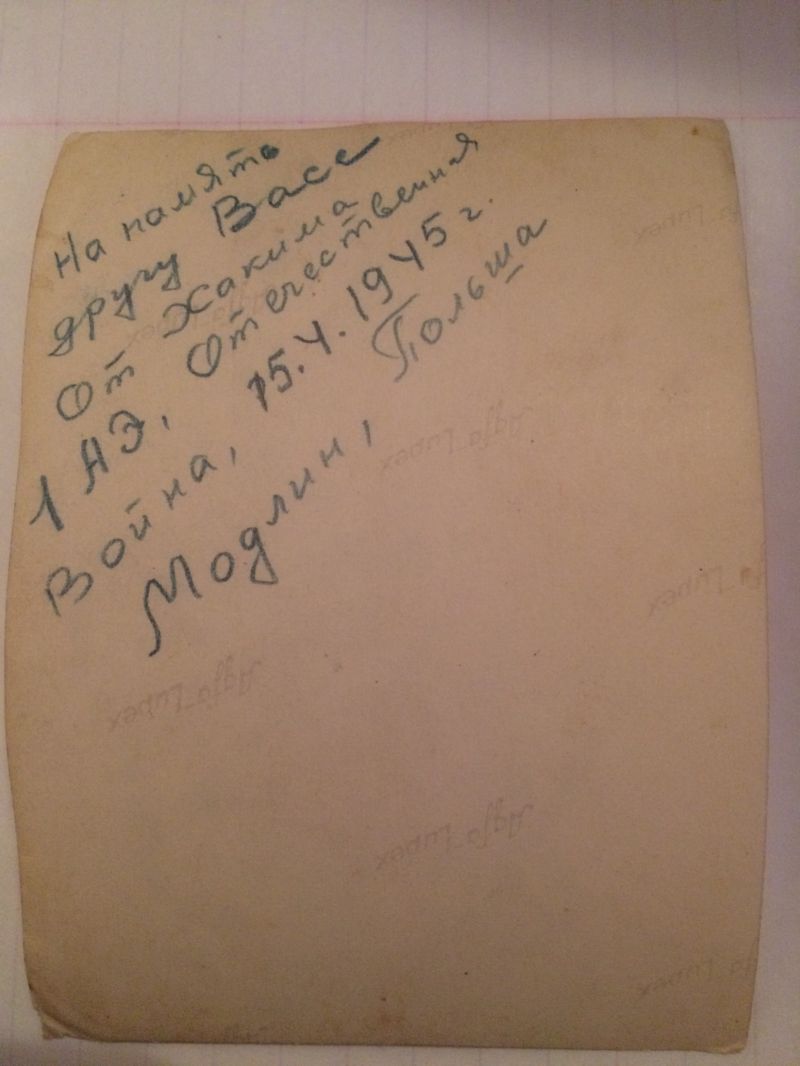 На память
другу Васе
От Хакима
1 АЭ, Отечественная
Война, 15.4.1945 г.
Модлин, Польша
Agfa Lupex
Agfa Lupex
Agfa Lupex
Agfa Lupex
Lupex
Lupex
Lupex